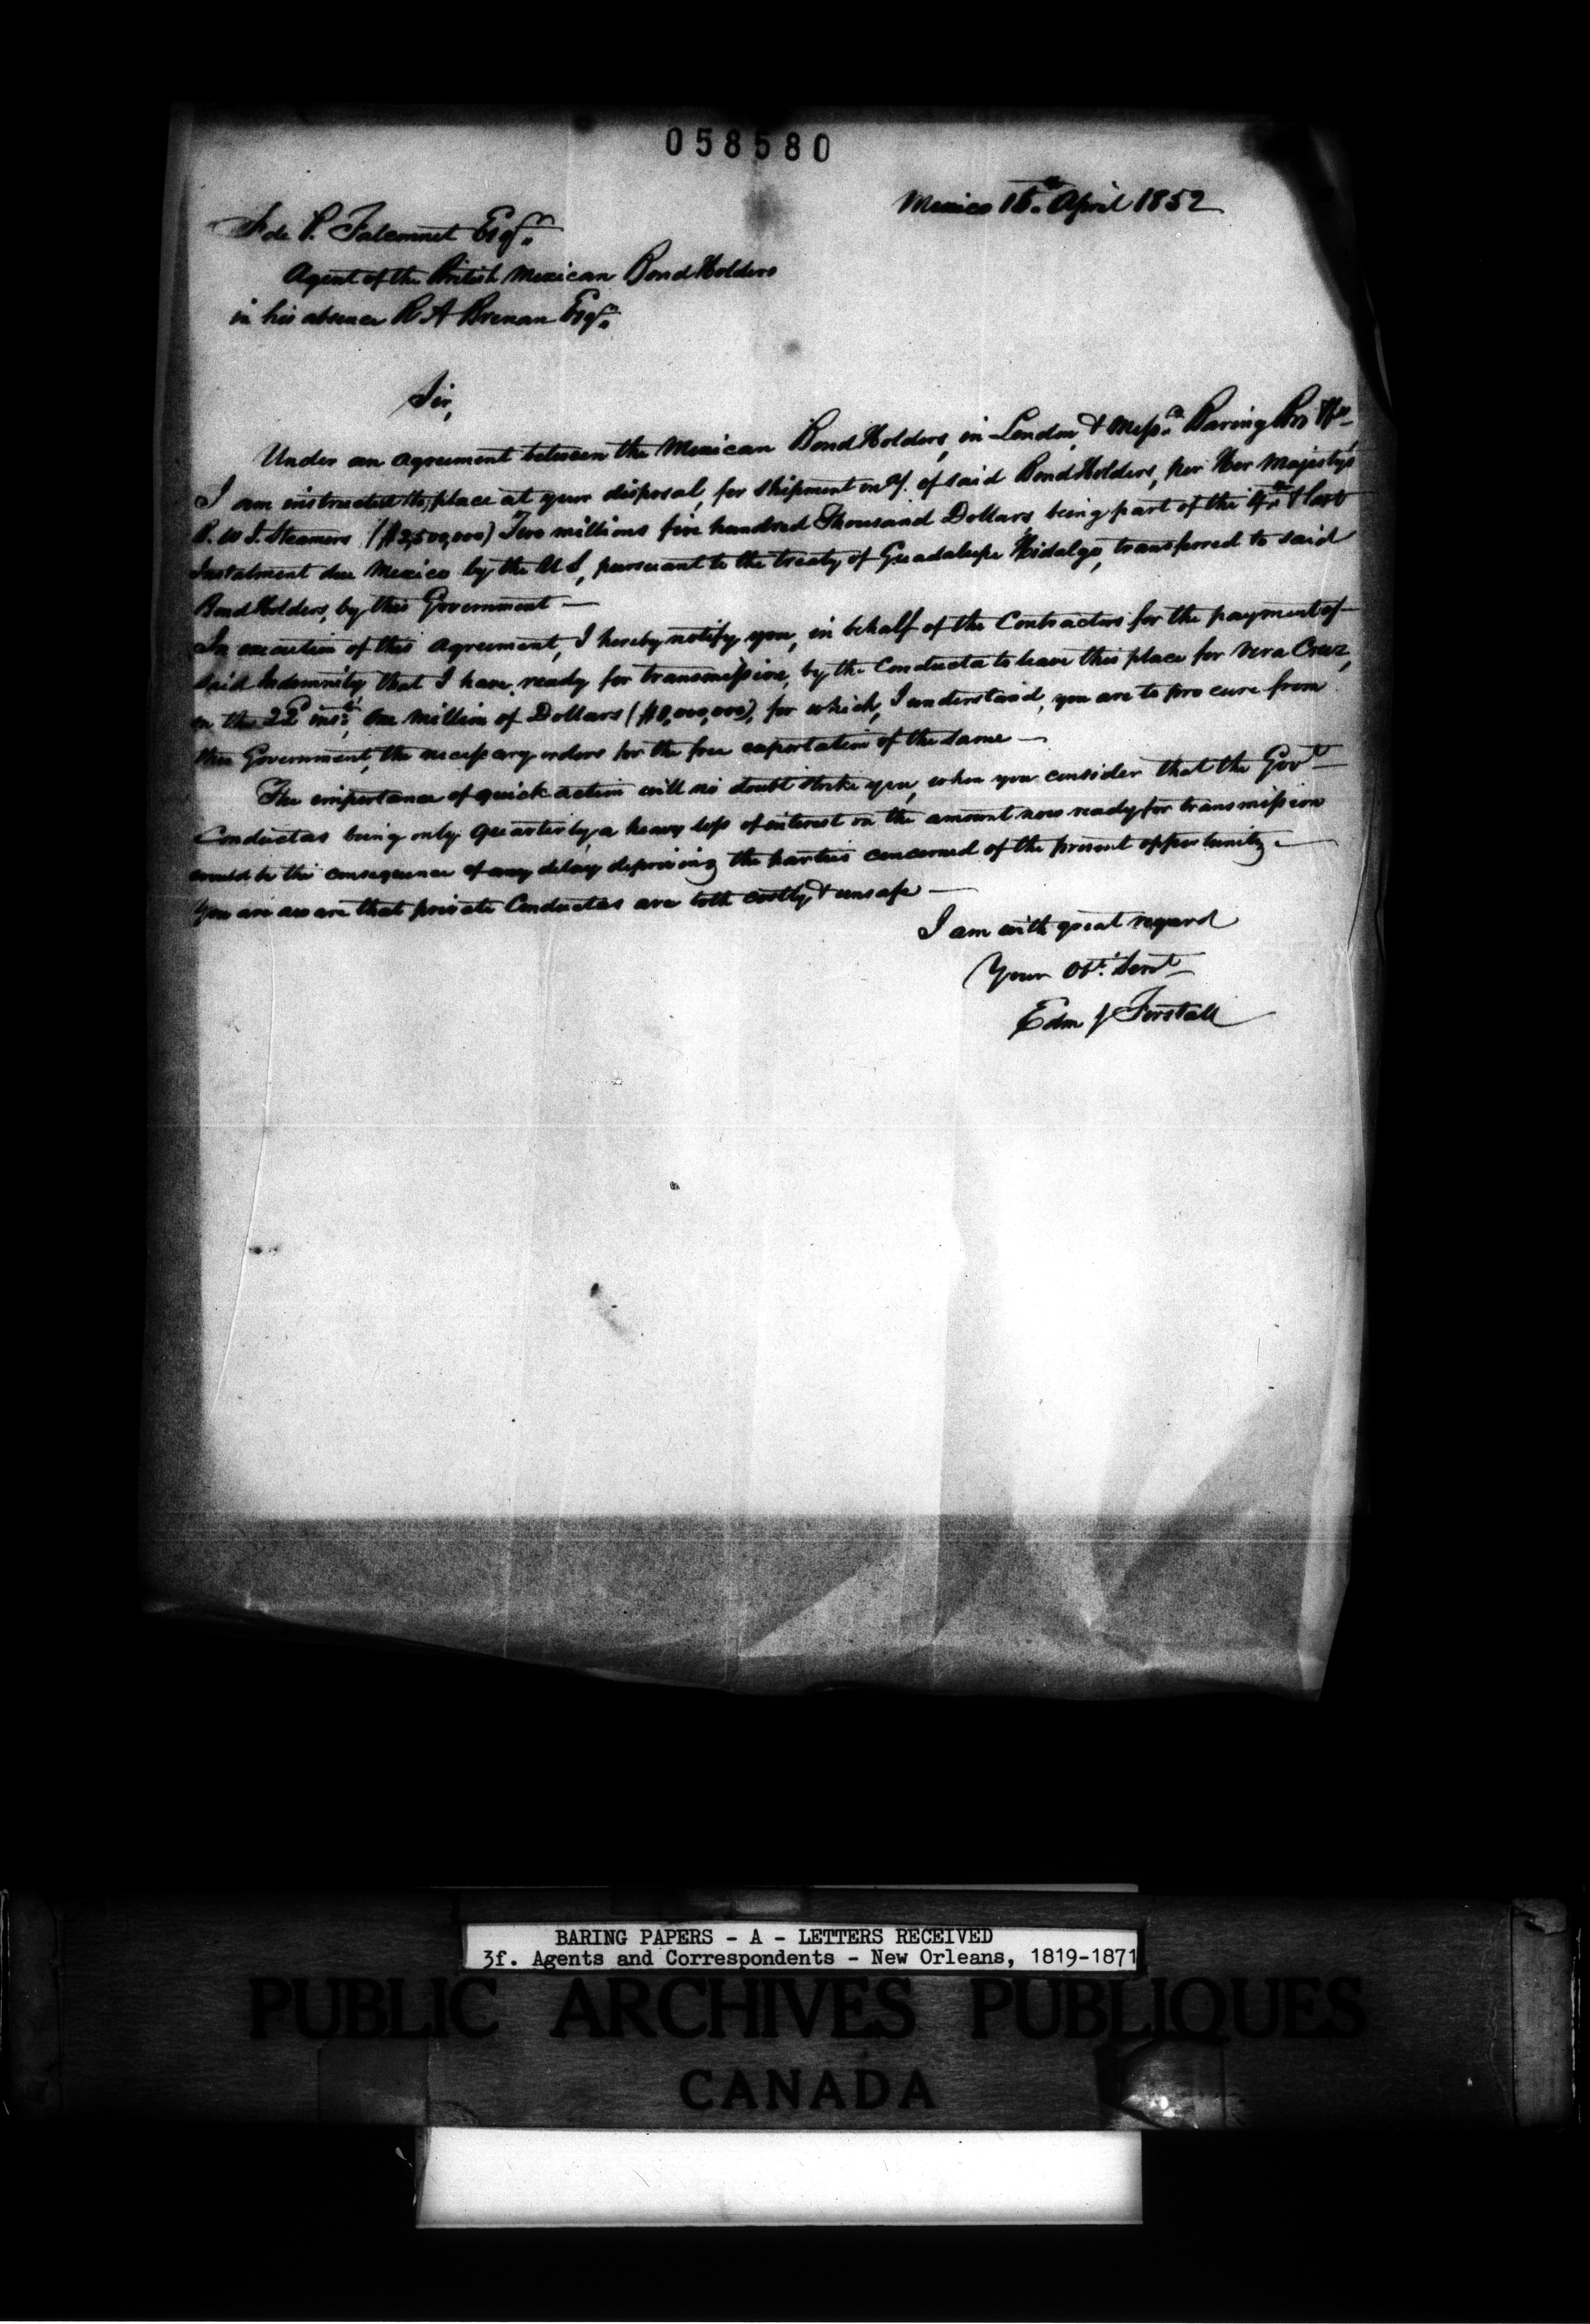 058580
Mexico 15th April 1852
F de P. Falconnet Esqr.
Agent of the British Mexican Bond Holders
in his absence R A Brenan Esqr.
Sir,
Under an agreement between the Mexican Bond Holders, in London, & Messrs. Baring Bro &Co
I am instructed to place at your disposal, for shipment on a/c. of said Bond Holders, per Her Majesty's
R. W I. Steamers ($2,500,000) Two millions five hundred Thousand Dollars, being part of the & last
Instalment due Mexico by the U S, pursuant to the treaty of Guadalupe Hidalgo, transferred to said
Bond Holders, by this Government —
In execution of this agreement, I hereby notify you, in behalf of the Contractors for the payment of
said Indemnity that I have, ready for transmission, by the Conducta to leave this place for Vera Cruz,
on the 22d inst: One million of Dollars ($1,000,000), for which, I understand, you are to procure from
this Government, the necessary orders for the free exportation of the same —
The importance of quick action will no doubt strike you, when you consider that the Govt
Conductas being only quarterly, a heavy loss of interest on the amount now ready for transmission
would be the consequence of any delay depriving the parties concerned of the present opportunity —
You are aware that private Conductas are both costly & unsafe —
I am with great regard
Your Obt. Servt
Edm J Forstall
BARING PAPERS - A - LETTERS RECEIVED
3f. Agents and Correspondents - New Orleans, 1819-1871
PUBLIC ARCHIVES PUBLIQUES
CANADA